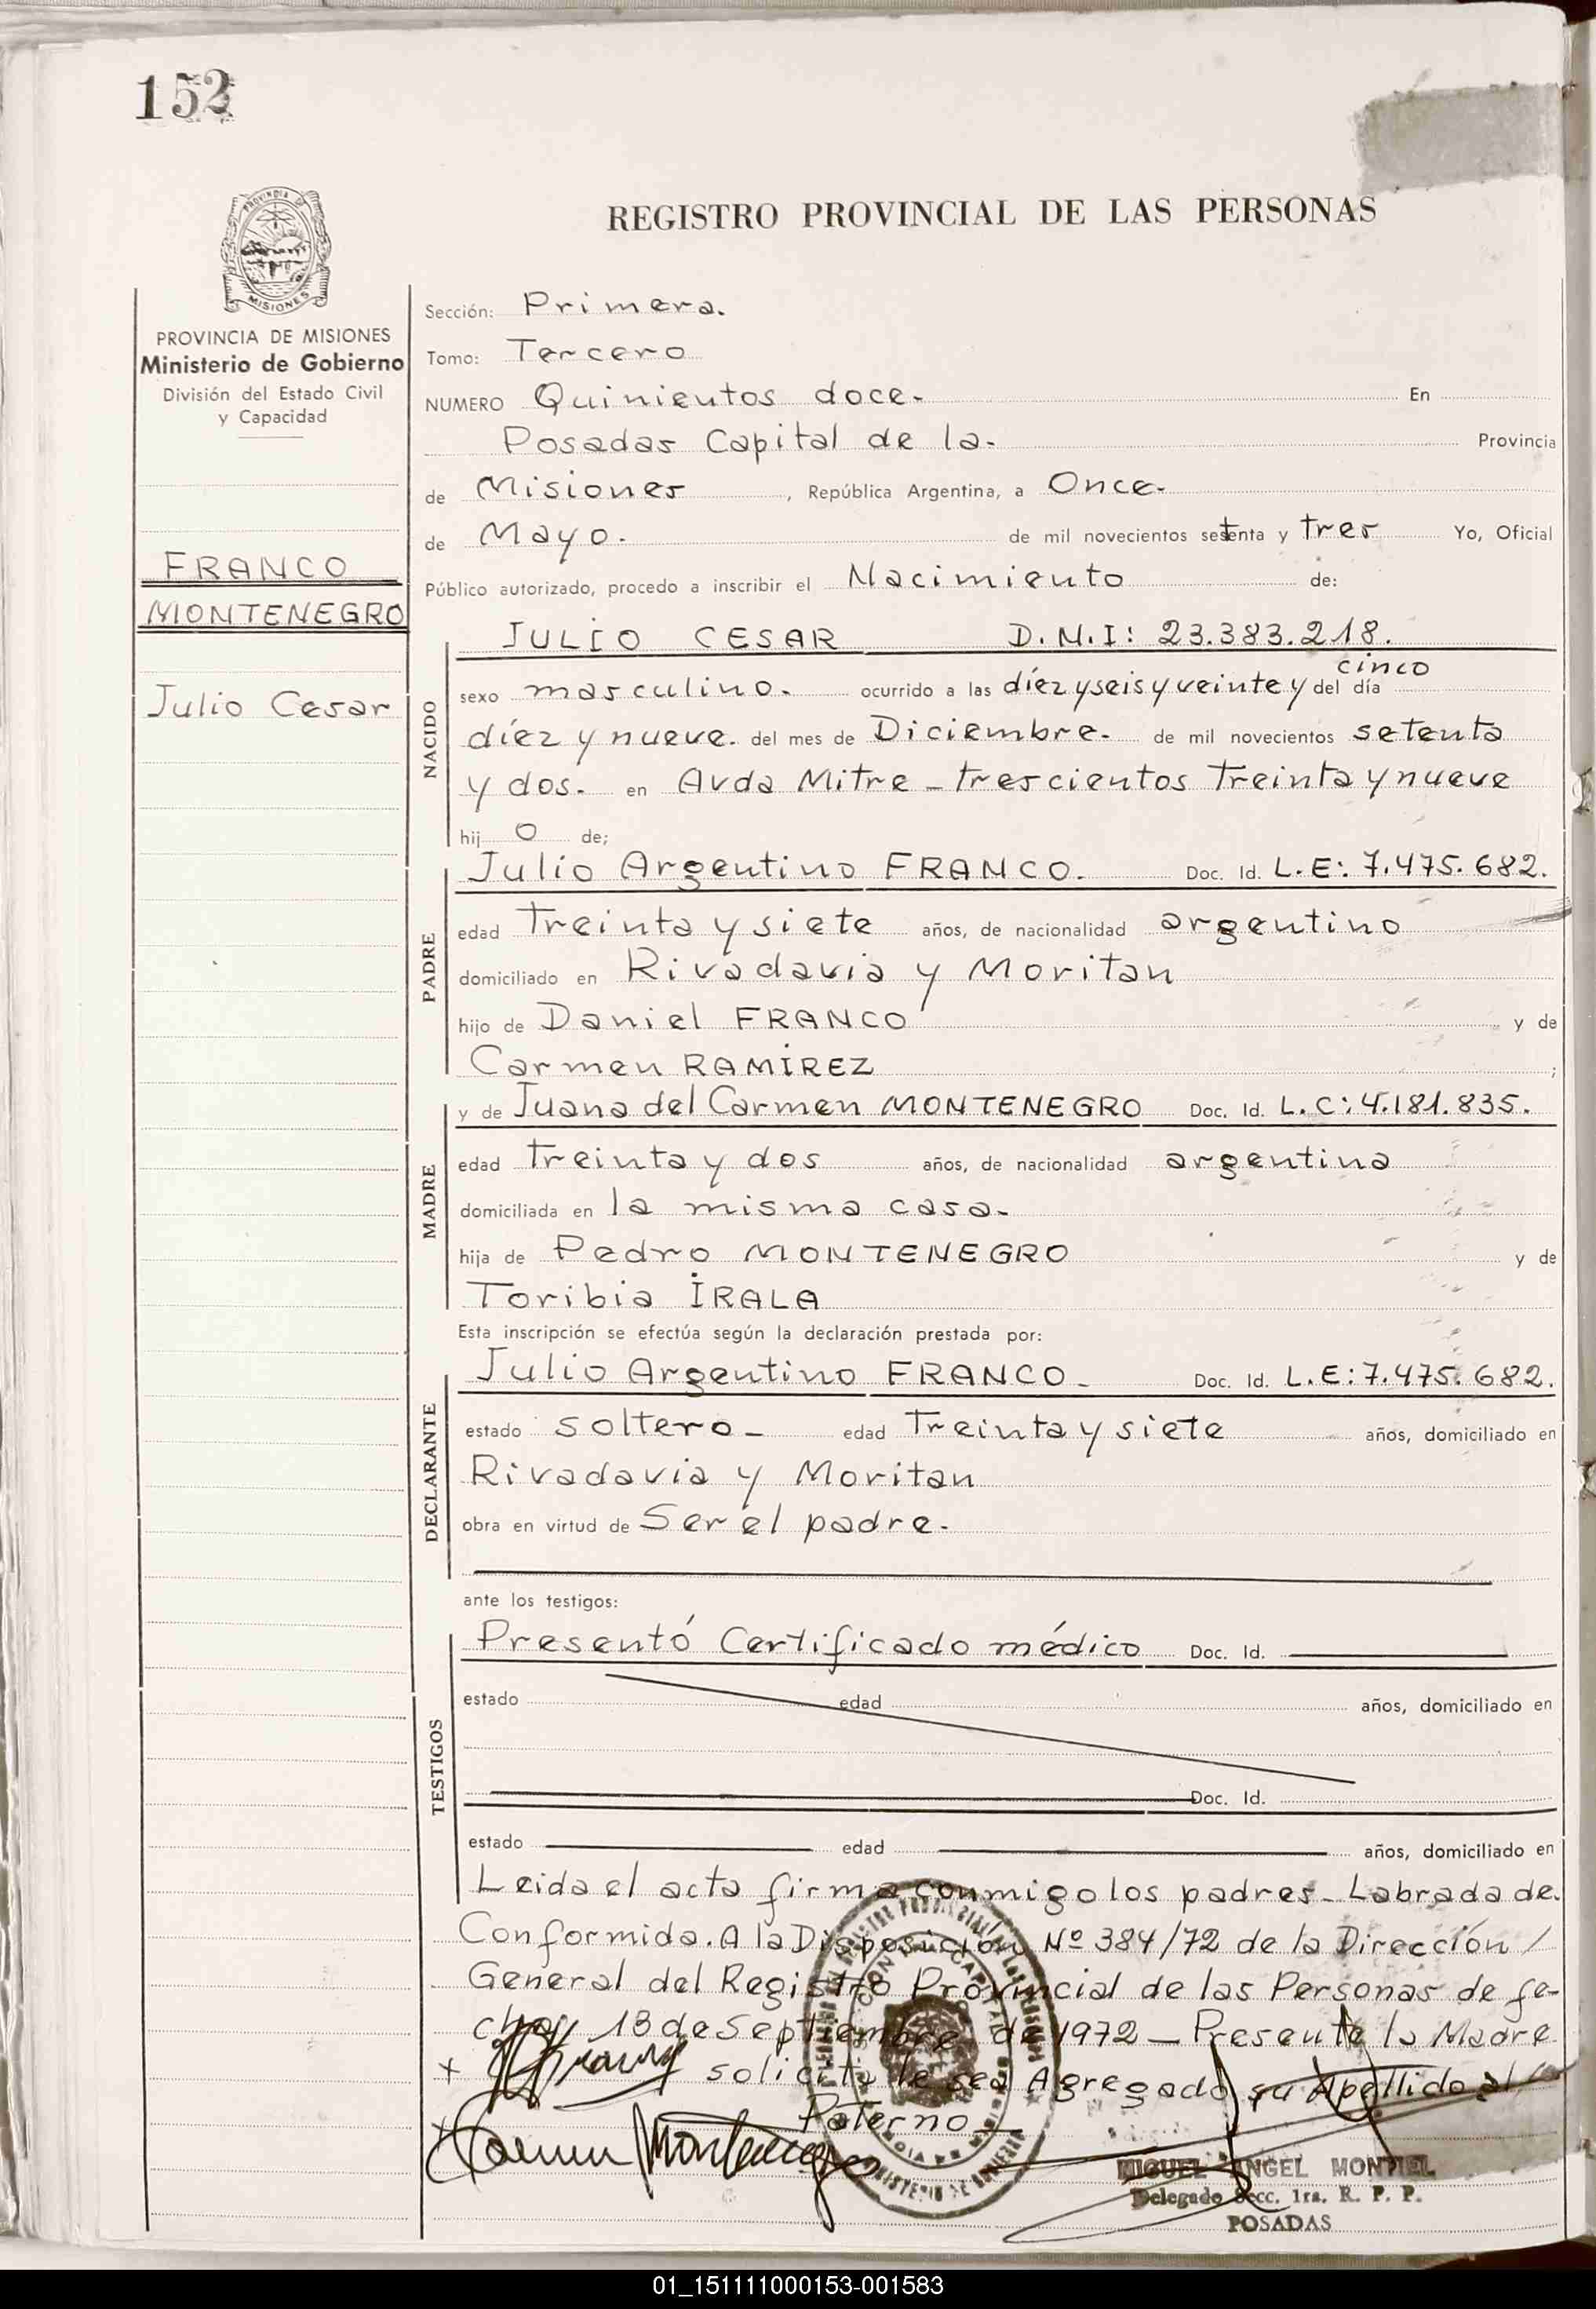 152
REGISTRO PROVINCIAL DE LAS PERSONAS
PROVINCIA DE MISIONES
Ministerio de Gobierno
División del Estado Civil
y Capacidad
FRANCO
MONTENEGRO
Julio Cesar
Sección: Primera.
Tomo: Tercero
NUMERO Quinientos doce. En
Posadas Capital de la. Provincia
de Misiones, República Argentina, a Once.
de Mayo. de mil novecientos setenta y tres Yo, Oficial
Público autorizado, procedo a inscribir el Nacimiento de:
NACIDO
JULIO CESAR D.N.I: 23.383.218.
cinco
sexo masculino. ocurrido a las díez y seis y veinte y del día
díez y nueve. del mes de Diciembre. de mil novecientos setenta
y dos. en Avda Mitre - trescientos Treinta y nueve
hij o de;
PADRE
Julio Argentino FRANCO. Doc. Id. L.E: 7.475.682.
edad Treinta y siete años, de nacionalidad argentino
domiciliado en Rivadavia y Moritan
hijo de Daniel FRANCO y de
Carmen RAMIREZ ;
MADRE
y de Juana del Carmen MONTENEGRO Doc. Id. L.C: 4.181.835.
edad Treinta y dos años, de nacionalidad argentina
domiciliada en la misma casa.
hija de Pedro MONTENEGRO y de
Toribia IRALA
Esta inscripción se efectúa según la declaración prestada por:
DECLARANTE
Julio Argentino FRANCO. Doc. Id. L.E: 7.475.682.
estado soltero - edad Treinta y siete años, domiciliado en
Rivadavia y Moritan
obra en virtud de Ser el padre.
ante los testigos:
TESTIGOS
Presentó Certificado médico Doc. Id.
estado edad años, domiciliado en
Doc. Id.
estado edad años, domiciliado en
Leida el acta firma conmigo los padres - Labrada de.
Conformida. A la Disposición Nº 384/72 de la Dirección /
General del Registro Provincial de las Personas de fe-
cha 13 de Septiembre de 1972 - Presente la Madre
solicita le sea Agregado su Apellido al
Paterno
Carmen Montenegro
MIGUEL ANGEL MONTIEL
Delegado Secc. 1ra. R. P. P.
POSADAS
01_151111000153-001583